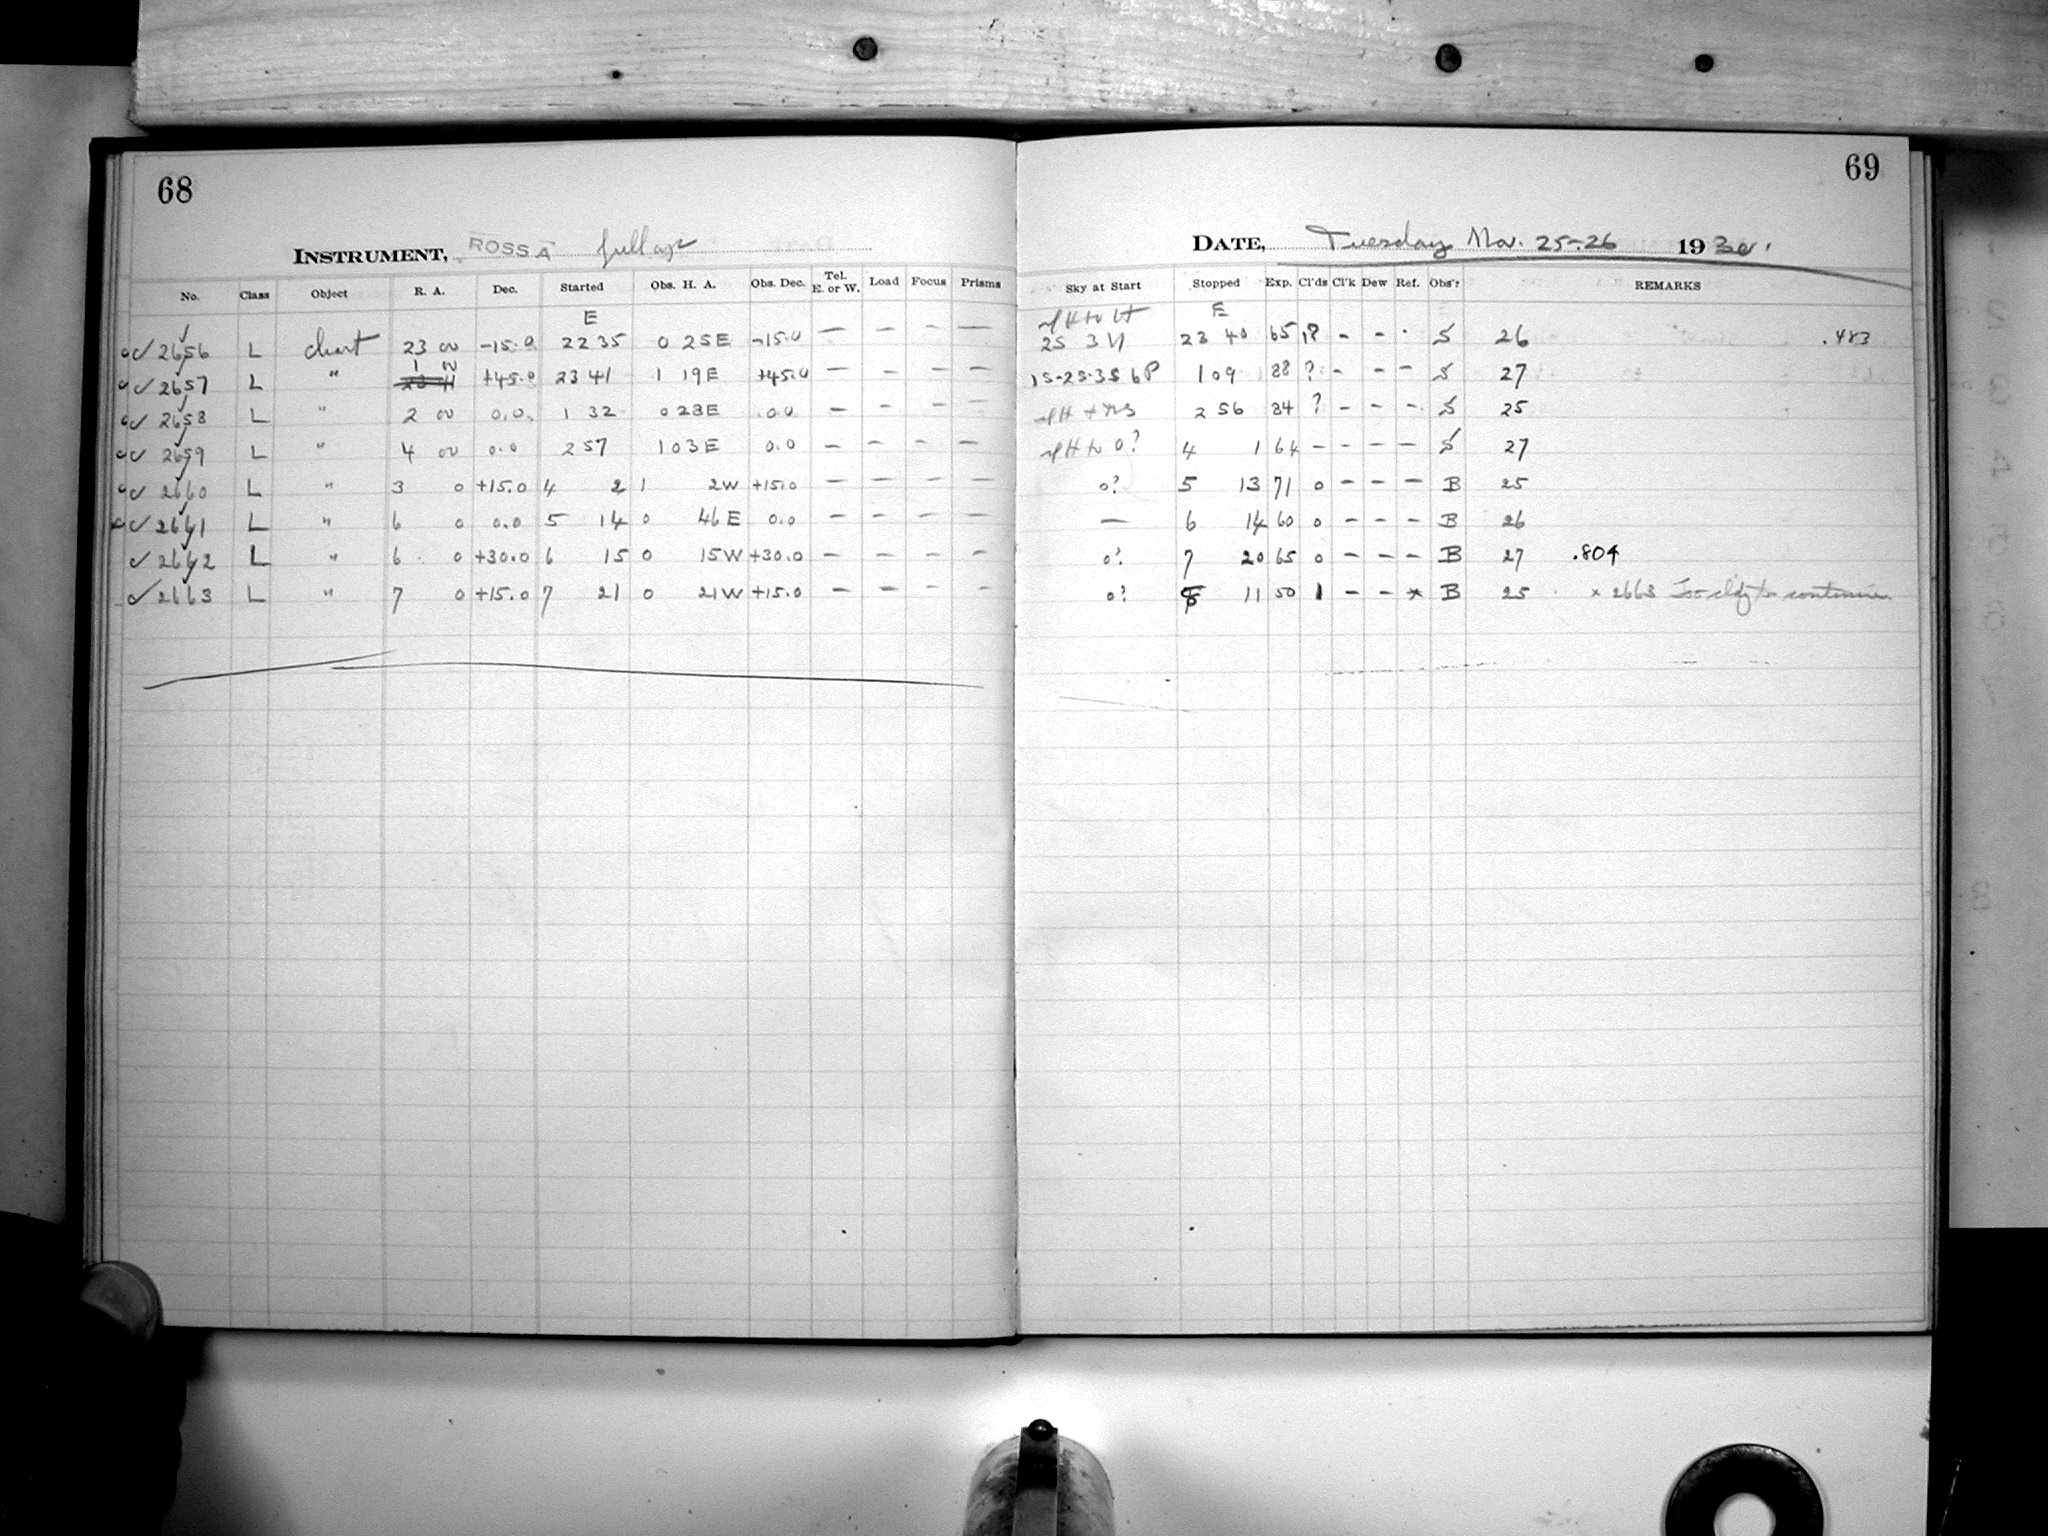 68
INSTRUMENT, ROSS A full ap
No. Class Object R. A. Dec. Started Obs. H. A. Obs. Dec. Tel. E. or W. Load Focus Prisms
E
2656 L chart 23 00 -15.0 22 35 0 25E -15.0 — — — —
2657 L " 1 00 +45.0 23 41 1 19E +45.0 — — — —
2658 L " 2 00 0.0 1 32 0 28E 0.0 — — — —
2659 L " 4 00 0.0 2 57 1 03E 0.0 — — — —
2660 L " 3 0 +15.0 4 2 1 2W +15.0 — — — —
2661 L " 6 0 0.0 5 14 0 46E 0.0 — — — —
2662 L " 6 0 +30.0 6 15 0 15W +30.0 — — — —
2663 L " 7 0 +15.0 7 21 0 21W +15.0 — — — —
69
DATE, Tuesday Mar. 25-26 1930.
Sky at Start Stopped Exp. Cl'ds Cl'k Dew Ref. Obs'r REMARKS
E
2S 3 23 40 65 1? - - . S 26 .483
1S-2S-3S 6P 1 09 88 ? - - - S 27
2 56 84 ? - - - S 25
to 0? 4 1 64 - - - - S 27
0? 5 13 71 0 - - - B 25
— 6 14 60 0 - - - B 26
0? 7 20 65 0 - - - B 27 .804
0? 8 11 50 1 - - * B 25 × 2663 Too cldy to continue.